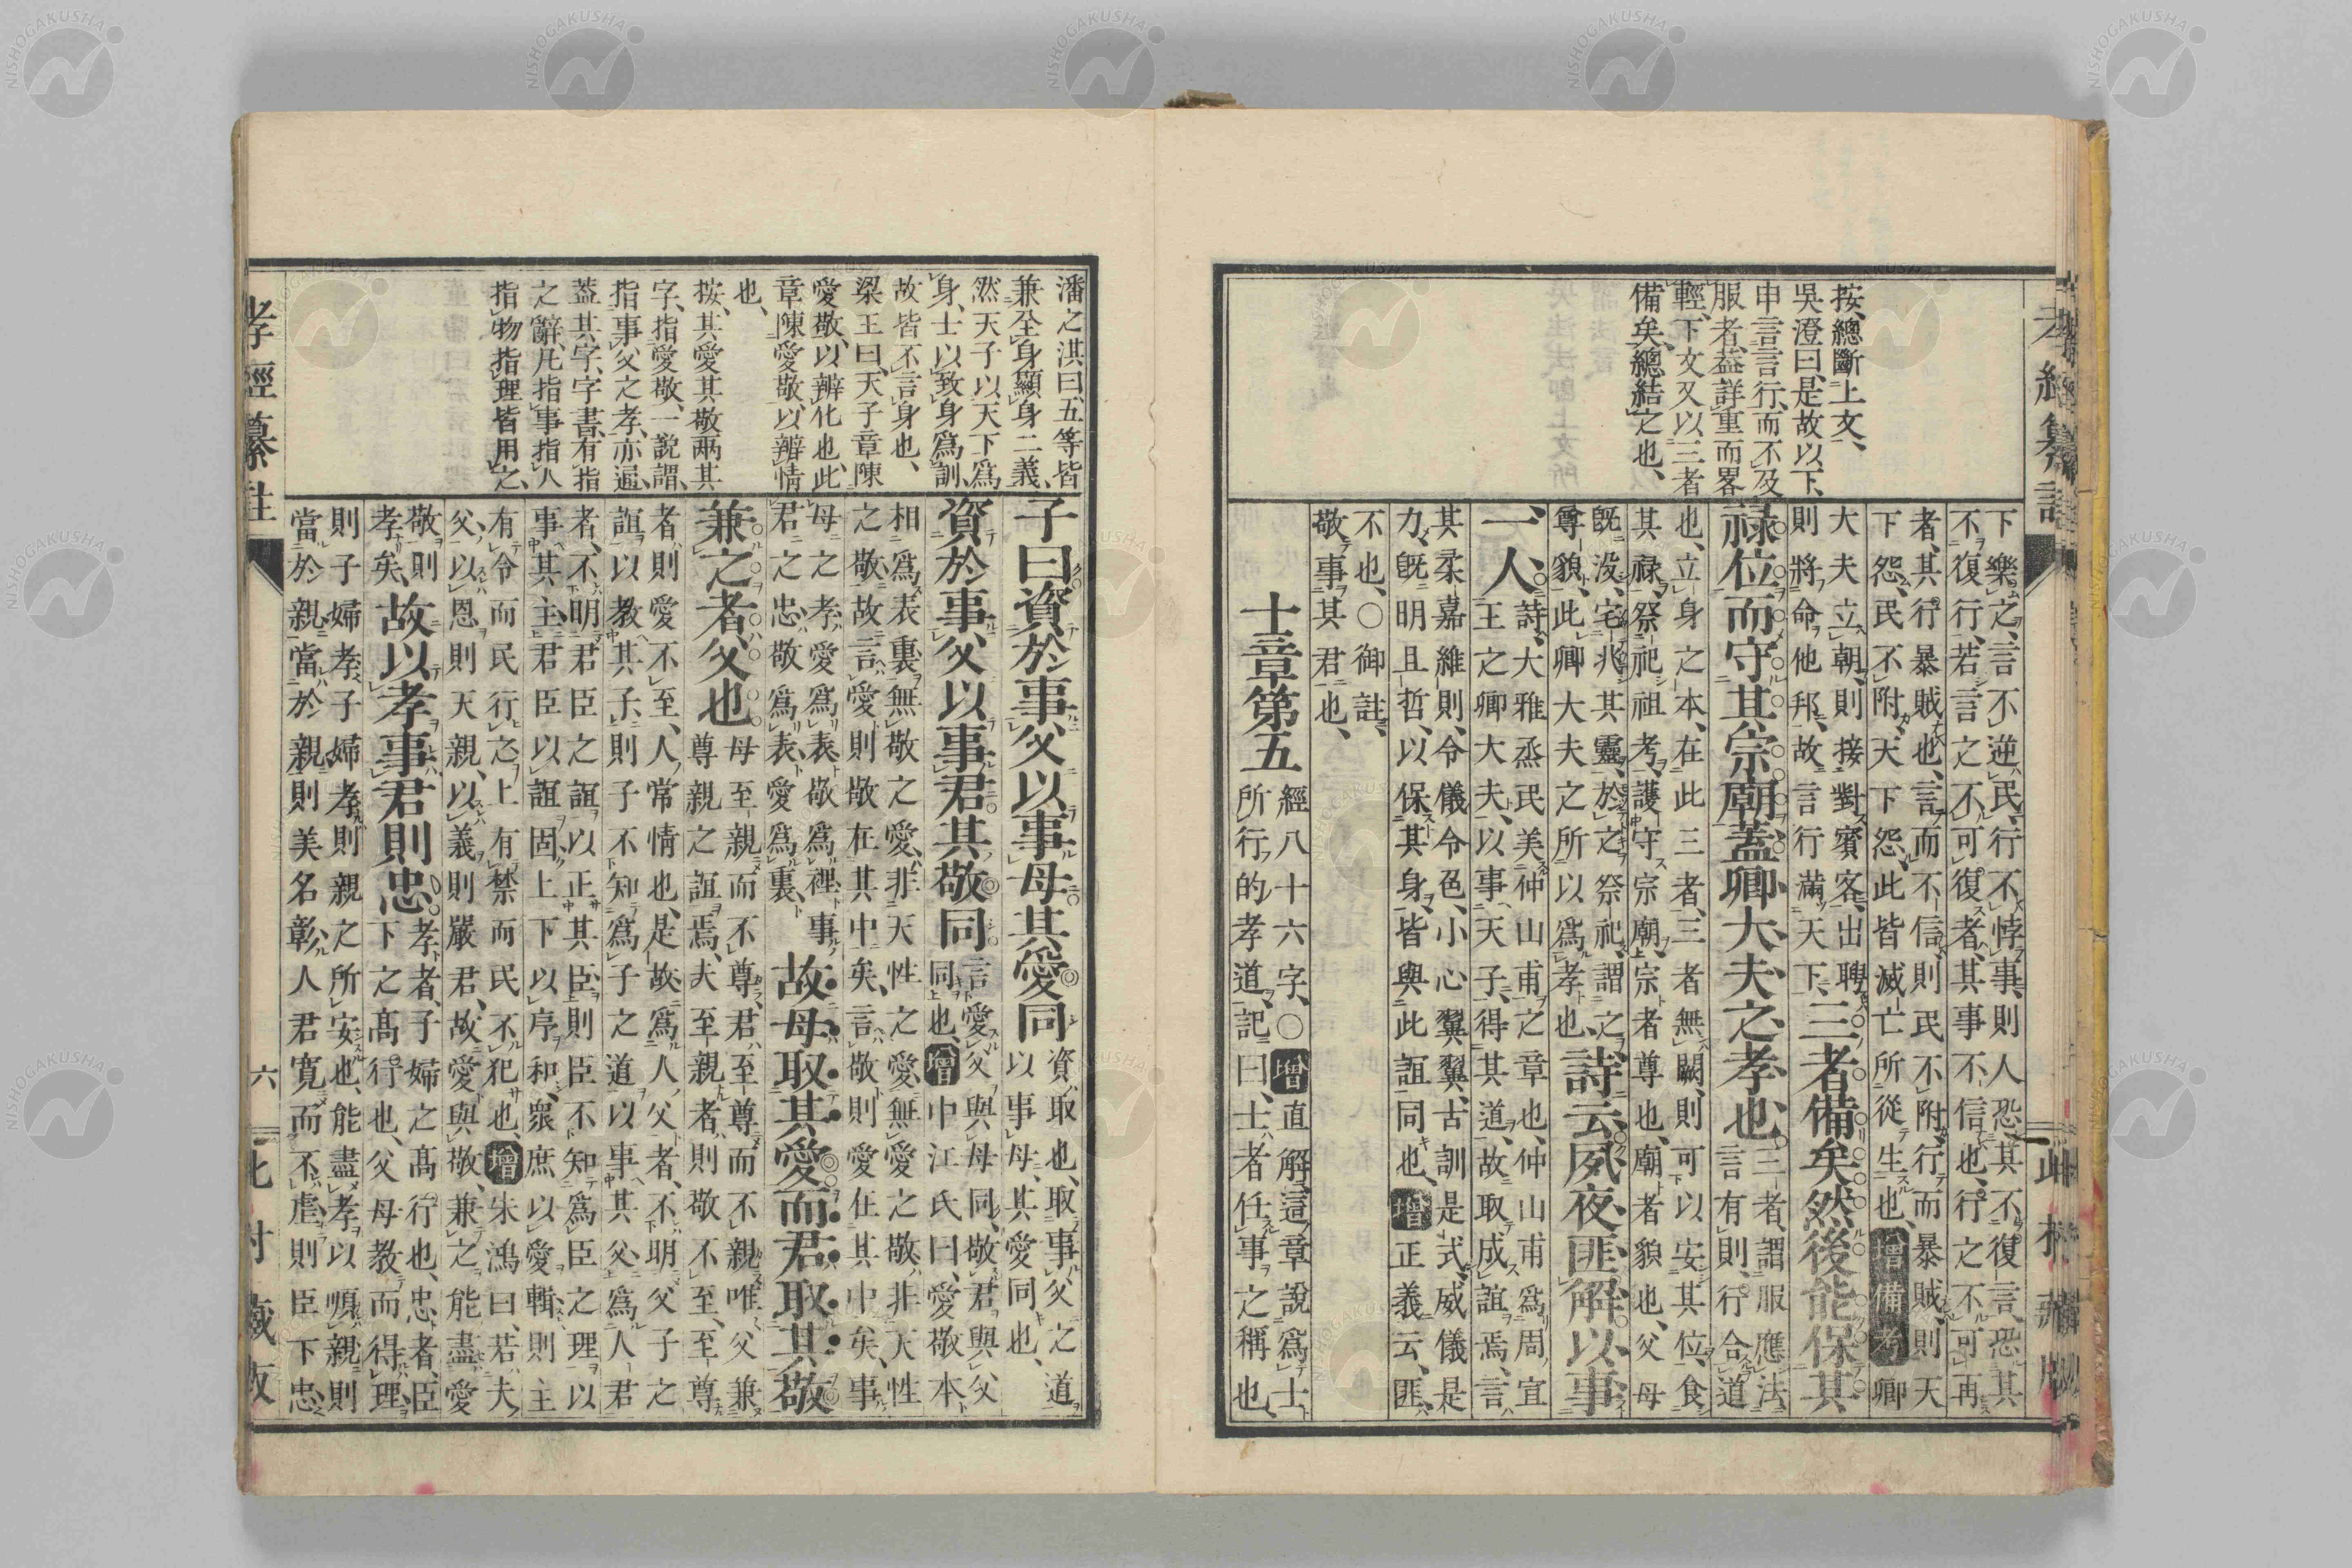 孝經纂註
按、總斷上文、
吳澄曰、是故以下、
申言言行、而不及
服者、葢詳重而畧
輕、下文又以三者
備矣總結之也、
下樂之、言不逆民、行不悖事、則人恐其不復言、恐其
不復行、若言之不可復者、其事不信也、行之不可再
者、其行暴賊也、言而不信、則民不附、行而暴賊、則天
下怨、民不附、天下怨、此皆滅亡所從生也、增備考卿
大夫立朝、則接對賓客、出聘
則將命他邦、故言行滿天下、
三者備矣然後能保其
祿位而守其宗廟、蓋卿大夫之孝也、
三者、謂服應法、
言有則、行合道
也、立身之本、在此三者、三者無闕、則可以安其位、食
其祿、祭祀祖考、護守宗廟、宗者尊也、廟者貌也、父母
既沒、宅兆其靈、於之祭祀、謂之
尊貌、此卿大夫之所以爲孝也、
詩云、夙夜匪解以事
一人、
詩、大雅烝民美仲山甫之章也、仲山甫爲周宣
王之卿大夫、以事天子、得其道、故取成誼焉、言
其柔嘉維則、令儀令色、小心翼翼、古訓是式、威儀是
力、既明且哲、以保其身、皆與此誼同也、增正義云、匪
不也、○御註、
敬事其君也、
士章第五
經八十六字、○增直解、這章說爲士
所行的孝道、記曰、士者任事之稱也、
潘之淇曰、五等皆
兼全身顯身二義、
然天子以天下爲
身、士以致身爲訓、
故皆不言身也、
梁王曰、天子章陳
愛敬、以辨化也、此
章陳愛敬、以辨情
也、
按、其愛其敬兩其
字、指愛敬、一說謂、
指事父之孝、亦逼、
葢其字、字書、有指
之辭、凡指事指人
指物指理皆用之、
子曰資於事父以事母其愛同
資、取也、取事父之道
以事母、其愛同也、
資於事父以事君其敬同
言愛父與母同、敬君與父
同也、增中江氏曰、愛敬本
相爲表裏、無敬之愛、非天性之愛、無愛之敬、非天性
之敬、故言愛、則敬在其中矣、言敬、則愛在其中矣、事
母之孝、愛爲表、敬爲裡、事
君之忠、敬爲表、愛爲裏、
故母取其愛而君取其敬
兼之者、父也
母至親而不尊、君至尊而不親、唯父兼
尊親之誼焉、夫至親者、則敬不至、至尊
者、則愛不至、人常情也、是故爲人父者、不明父子之
誼以教其子、則子不知爲子之道以事其父、爲人君
者、不明君臣之誼以正其臣、則臣不知爲臣之理以
事其主、君臣以誼固、上下以序和、衆庶以愛輯、則主
有令而民行之、上有禁而民不犯也、增朱鴻曰、若夫
父、以恩則天親、以義則嚴君、故愛與敬、兼之能盡愛
敬則
孝矣、
故以孝事君則忠
孝者、子婦之高行也、忠者、臣
下之高行也、父母教而得理、
則子婦孝、子婦孝則親之所安也、能盡孝以順親、則
當於親、當於親、則美名彰、人君寬而不虐、則臣下忠、
孝經纂註
六